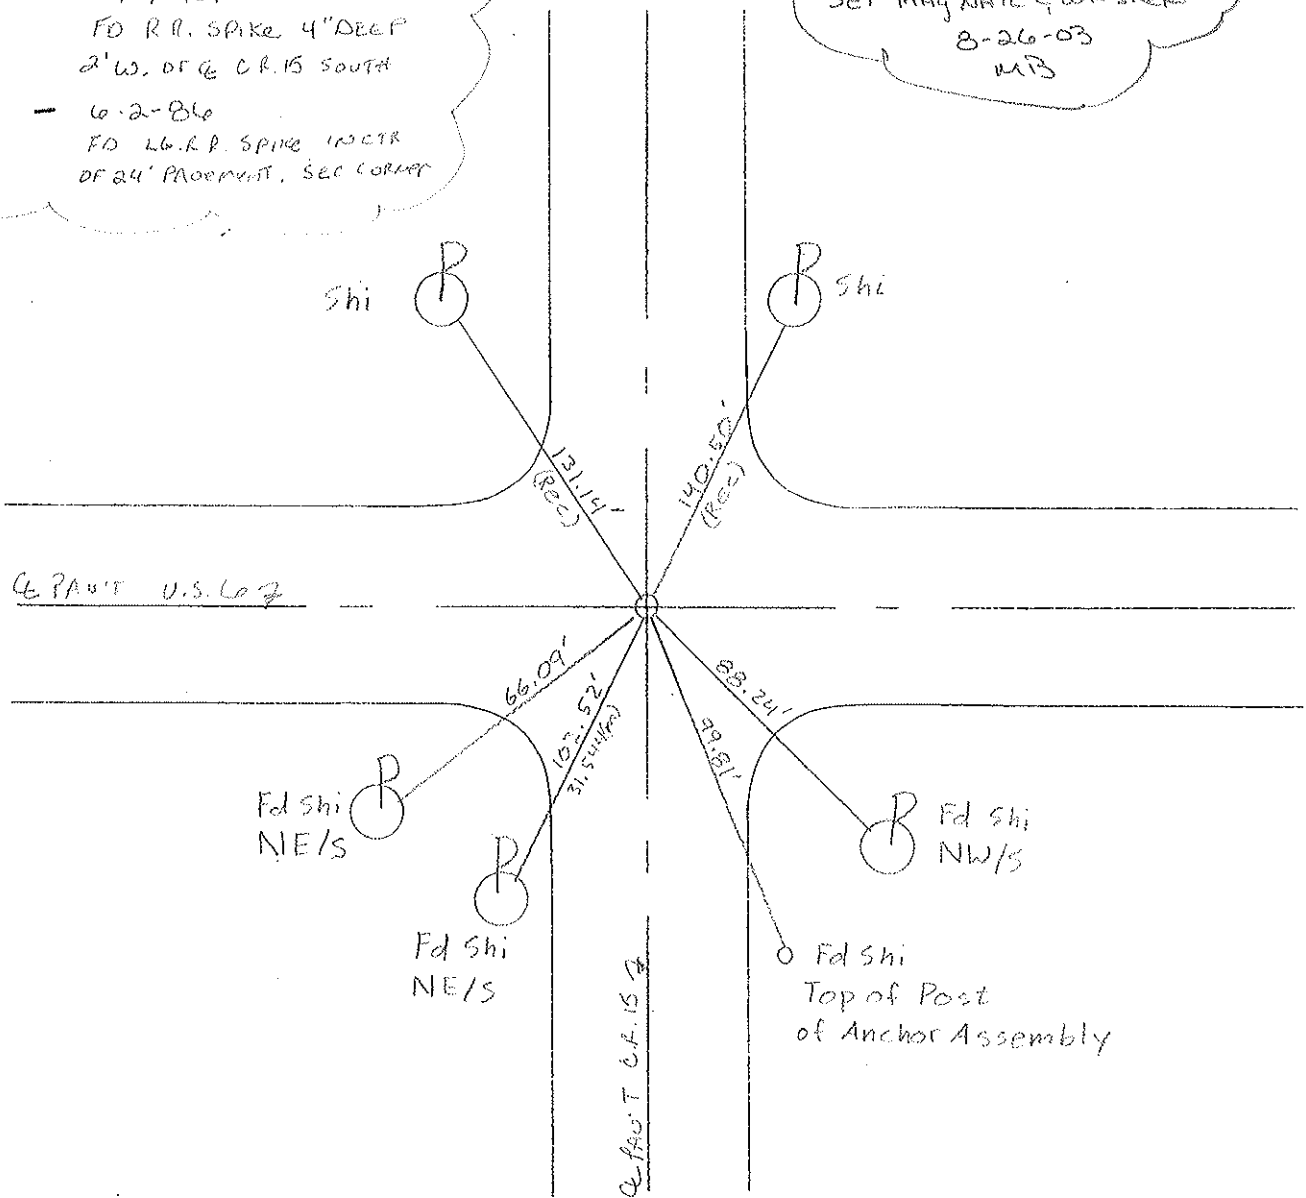 FD R.R. SPIKE 4" DEEP
2' W. OF ℄ C.R. 15 SOUTH
- 6-2-86
FD LG. R.R. SPIKE IN CTR
OF 24' PAVEMENT, SEC CORNER
SET MAG NAIL &
8-26-03
MB
Shi
Shi
131.14'
(REC)
140.50'
(REC)
℄ PAV'T U.S. 6
66.09'
103.52'
88.24'
99.81'
Fd Shi
NE/S
Fd Shi
NE/S
Fd Shi
NW/S
Fd Shi
Top of Post
of Anchor Assembly
℄ PAV'T C.R. 15